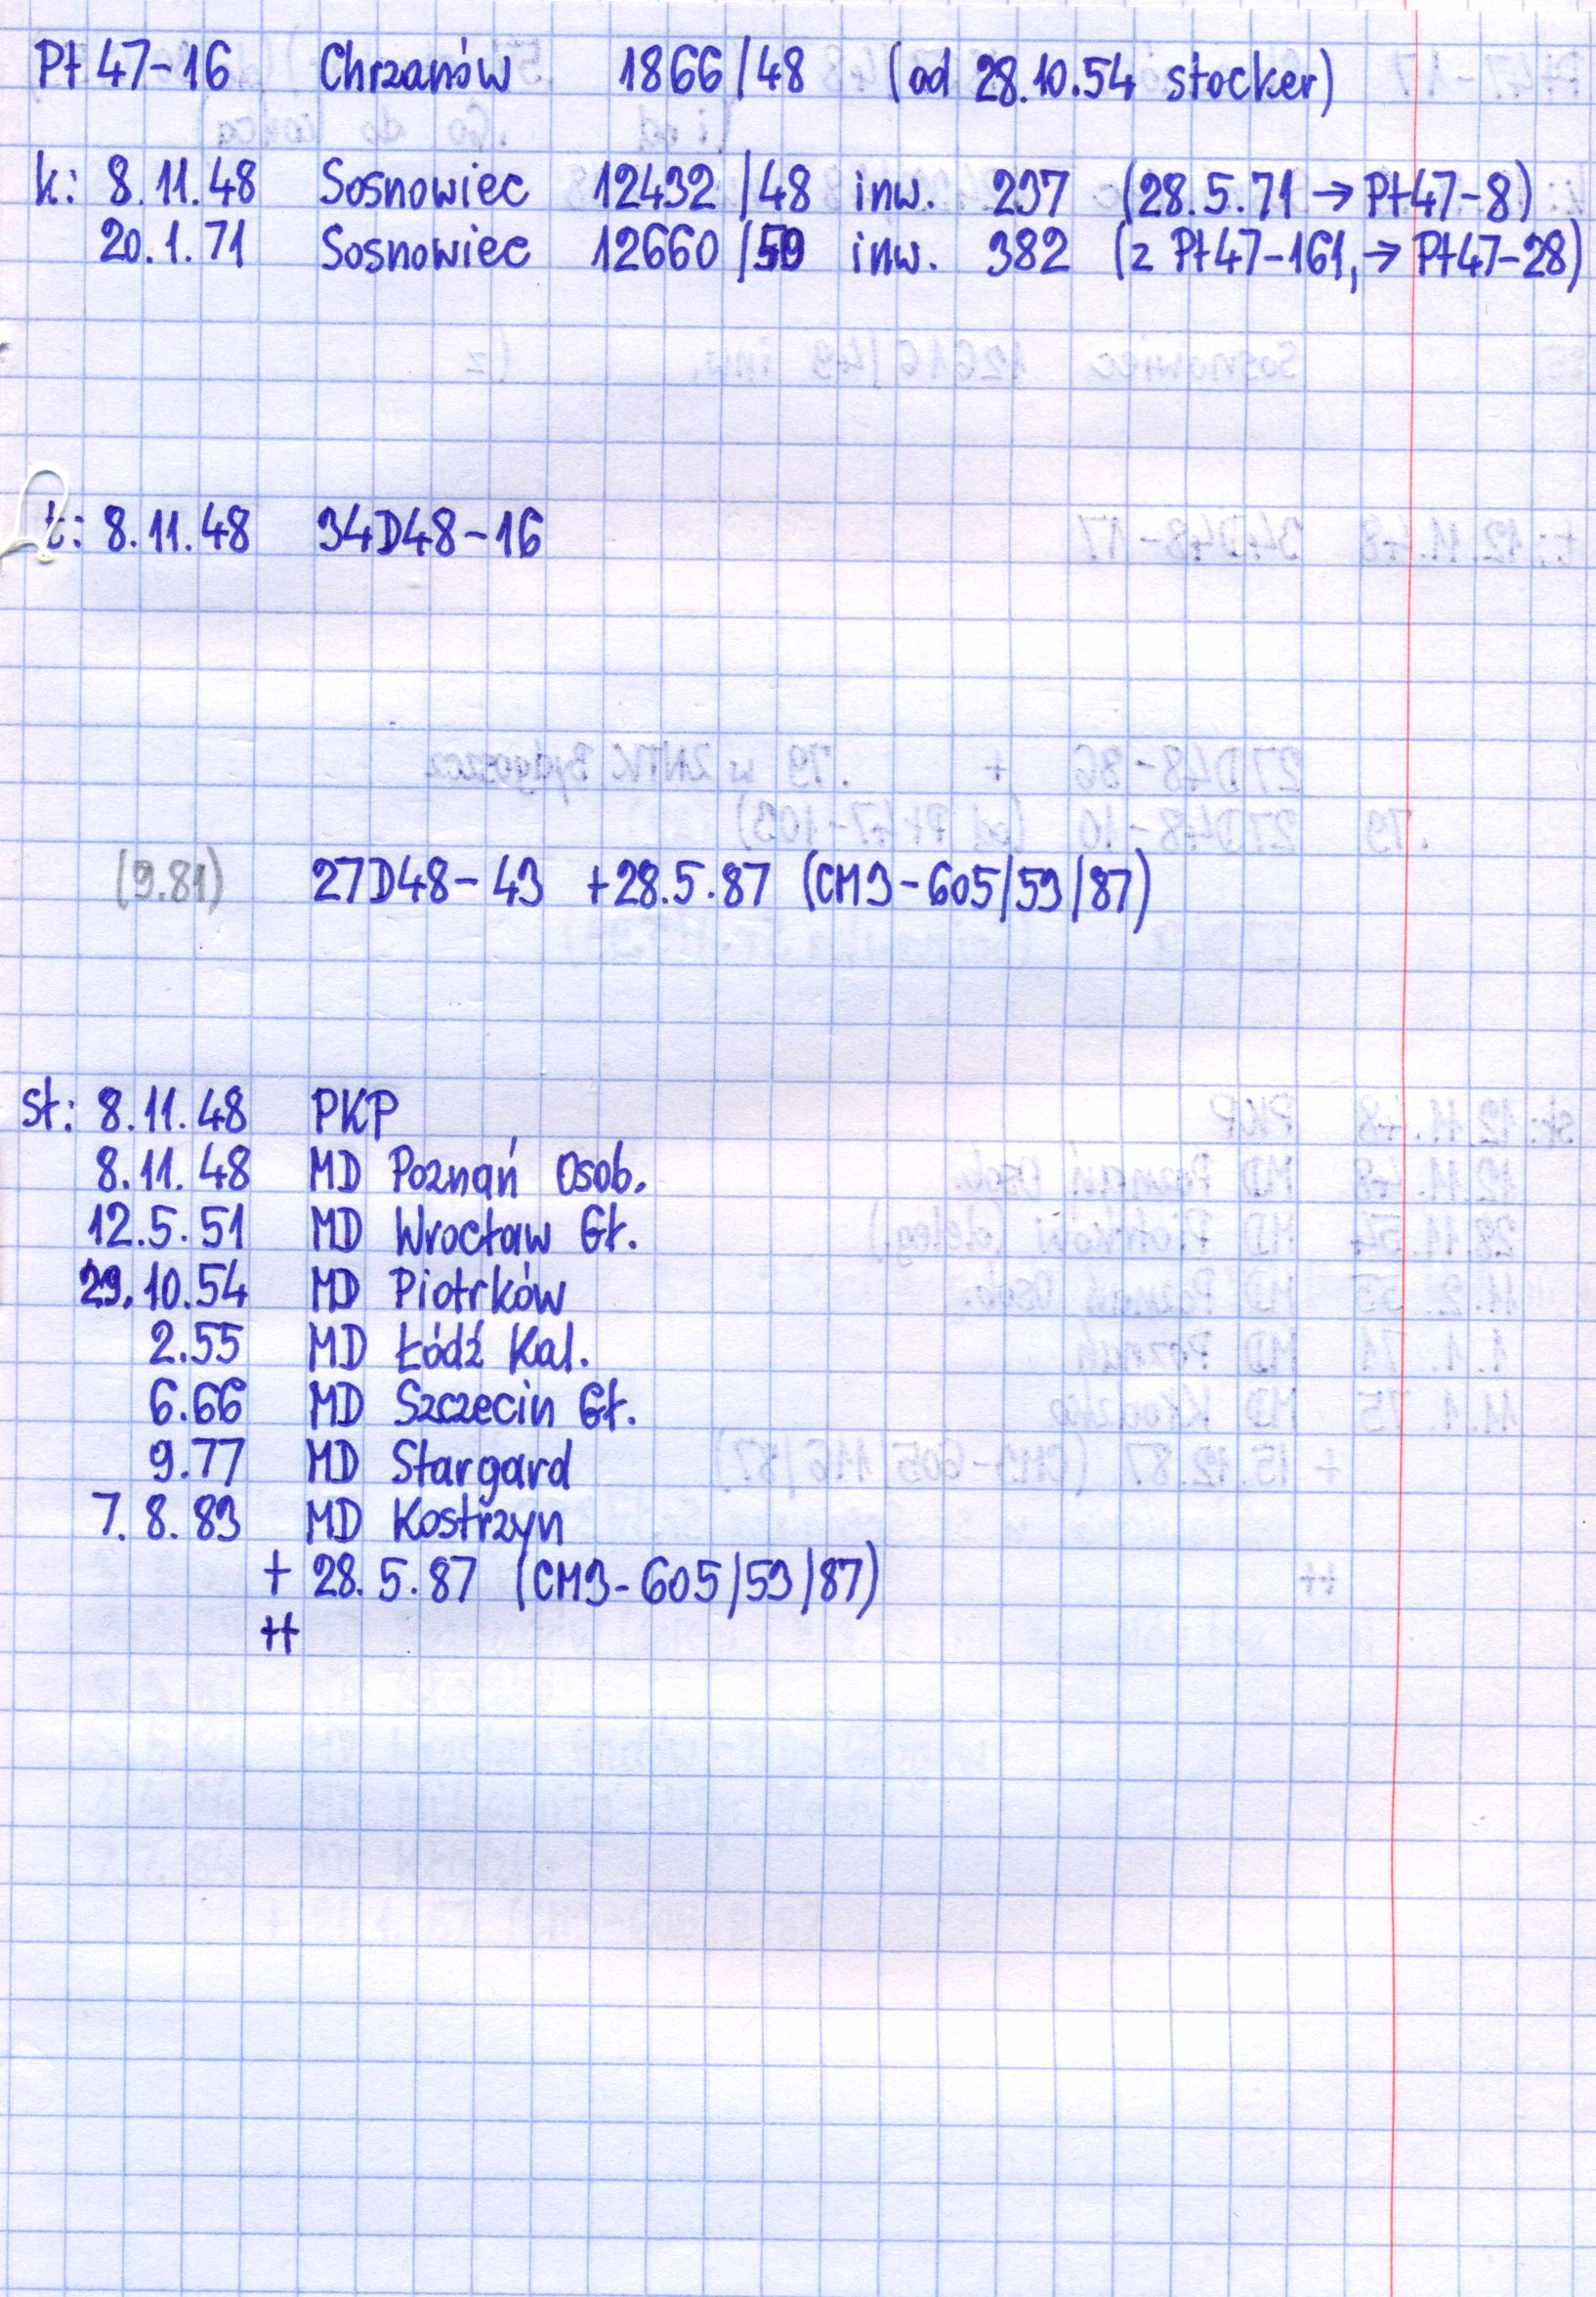 Pt 47-16 Chrzanów 1866/48 (od 28.10.54 stocker)
k: 8.11.48 Sosnowiec 12432/48 inw. 237 (28.5.71 → Pt47-8)
20.1.71 Sosnowiec 12660/50 inw. 382 (z Pt47-161, → Pt47-28)
t: 8.11.48 34D48-16
(9.81) 27D48-43 +28.5.87 (CM9-605/59/87)
st: 8.11.48 PKP
8.11.48 MD Poznań Osob.
12.5.51 MD Wrocław Gł.
29.10.54 MD Piotrków
2.55 MD Łódź Kal.
6.66 MD Szczecin Gł.
9.77 MD Stargard
7.8.83 MD Kostrzyn
+ 28.5.87 (CM9-605/59/87)
++